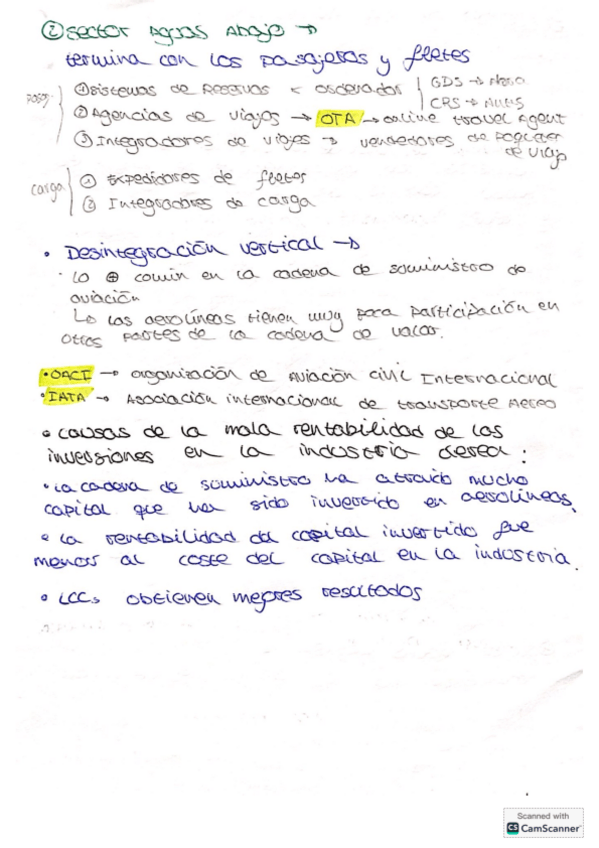 ② Sector Aguas Abajo →
termina con los pasajeros y fletes
pasaj.
① Sistemas de Reservas ordenador
GDS →
CRS →
② Agencias de viajes → OTA → online travel Agent
③ Integradores de viajes → vendedores de paquetes
de viaje
carga
① Expedidores de fletes
② Integradores de carga
• Desintegración vertical →
· Lo ⊕ común en la cadena de suministro de
aviación
↳ las aerolíneas tienen muy poca participación en
otras partes de la cadena de valor.
• OACI → organización de Aviación civil Internacional
• IATA → Asociación internacional de transporte Aereo
• causas de la mala rentabilidad de las
inversiones en la industria aerea:
• La cadena de suministro ha atraido mucho
capital que han sido invertido en aerolíneas.
• La rentabilidad del capital invertido fue
menor al coste del capital en la industria.
• LCCs obtienen mejores resultados
Scanned with
CS CamScanner